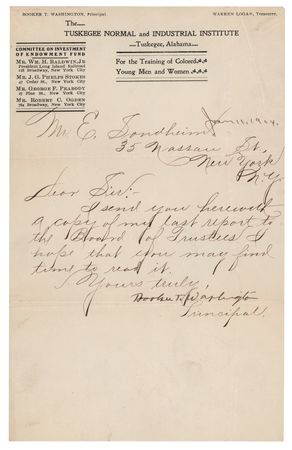 BOOKER T. WASHINGTON, Principal. WARREN LOGAN, Treasurer.
The
TUSKEGEE NORMAL AND INDUSTRIAL INSTITUTE
Tuskegee, Alabama
COMMITTEE ON INVESTMENT
OF ENDOWMENT FUND
MR. WM. H. BALDWIN, JR
President Long Island Railroad
128 Broadway, New York City
MR. J. G. PHELPS STOKES
47 Cedar St., New York City
MR. GEORGE F. PEABODY
27 Pine St., New York City
MR. ROBERT C. OGDEN
784 Broadway, New York City
For the Training of Colored
Young Men and Women
Jan. 11, 1904.
Mr. E. Sondheim
35 Nassau St.,
New York
N.Y.
Dear Sir:-
I send you herewith
a copy of my last report to
the Board of Trustees. I
hope that you may find
time to read it.
Yours truly,
Booker T. Washington
Principal.